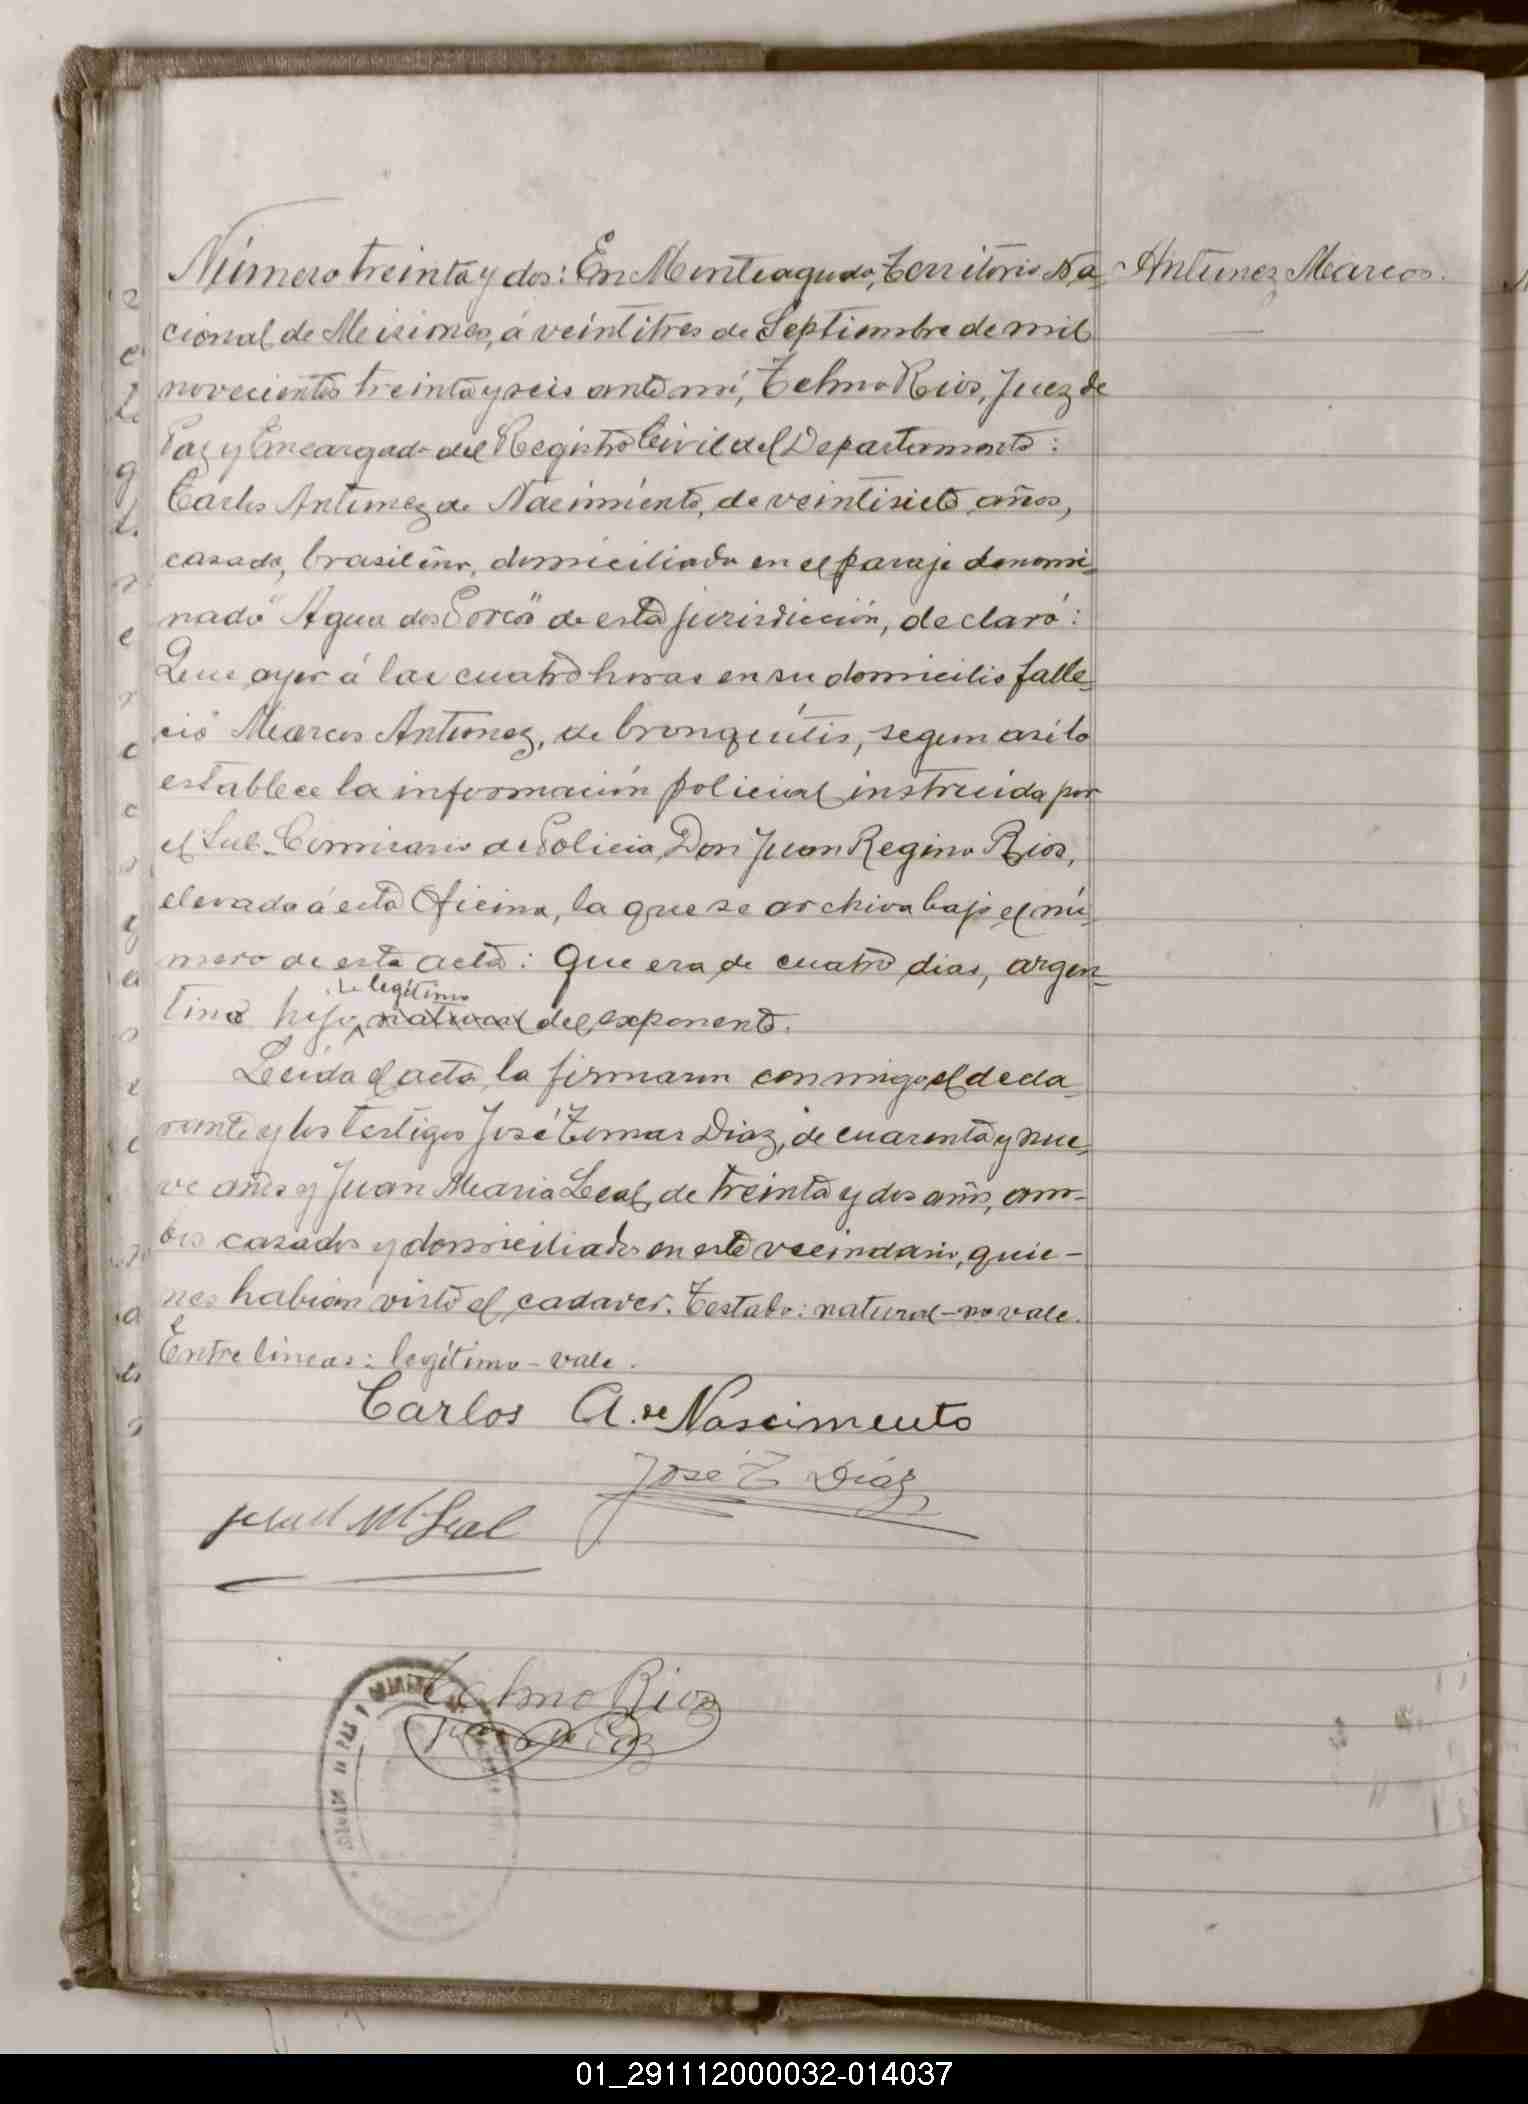 Número treinta y dos: En Monteagudo, Territorio Na-
Antunez Marcos.
cional de Misiones, á veintitres de Septiembre de mil
novecientos treinta y seis ante mí, Telmo Rios, Juez de
Paz y Encargado del Registro Civil del Departamento:
Carlos Antunez de Nacimiento, de veintisiete años,
casado, brasilero, domiciliado en el paraje denomi-
nado "Agua dos Porcos" de esta jurisdicción, declaró:
Que ayer á las cuatro horas en su domicilio falle-
ció Marcos Antunez, de bronquitis, segun asi lo
establece la información policial instruida por
el Sub-Comisario de Policia, Don Juan Regino Rios,
elevada á esta Oficina, la que se archiva bajo el nú-
mero de esta acta: Que era de cuatro dias, argen-
legítimo
tino hijo natural del exponente.
Leída el acta, la firmaron conmigo el decla-
rante y los testigos José Tomas Diaz, de cuarenta y nue-
ve años y Juan Maria Leal, de treinta y dos años, am-
bos casados y domiciliados en este vecindario, quie-
nes habian visto el cadaver. Testado: natural - no vale.
Entre lineas: legítimo - vale.
Carlos A. de Nascimento
José T Díaz
Juan M Leal
Telmo Rios
Juez de Paz
01_291112000032-014037